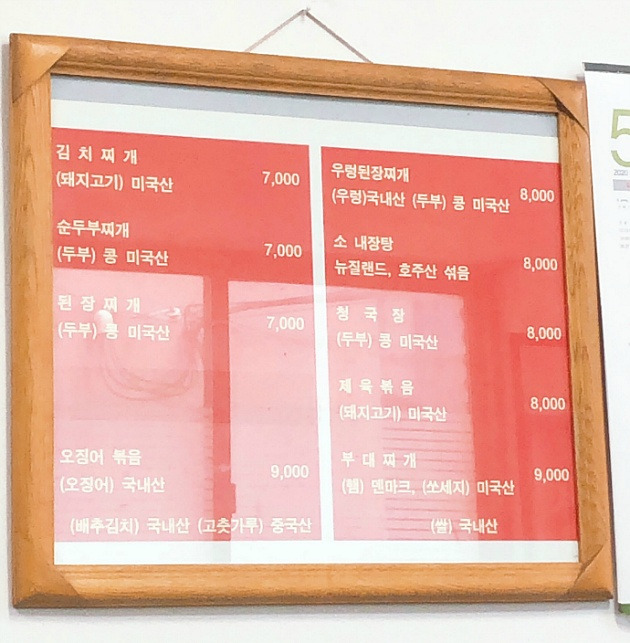 김치찌개
(돼지고기) 미국산 7,000
순두부찌개
(두부) 콩 미국산 7,000
된장찌개
(두부) 콩 미국산 7,000
오징어 볶음
(오징어) 국내산 9,000
(배추김치) 국내산 (고춧가루) 중국산
우렁된장찌개
(우렁)국내산 (두부) 콩 미국산 8,000
소 내장탕
뉴질랜드, 호주산 섞음 8,000
청국장
(두부) 콩 미국산 8,000
제육볶음
(돼지고기) 미국산 8,000
부대찌개
(햄) 덴마크, (쏘세지) 미국산 9,000
(쌀) 국내산
5
2020